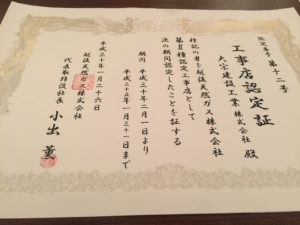 認定番号 第十二号
工事店認定証
大宗建設工業株式会社 殿
標記の者を越後天然ガス株式会社
第Ⅱ種認定工事店として
次の期間認定したことを証する
期間 平成三十年二月一日より
平成三十五年一月三十一日まで
平成三十年一月二十六日
越後天然ガス株式会社
代表取締役社長 小出 薫